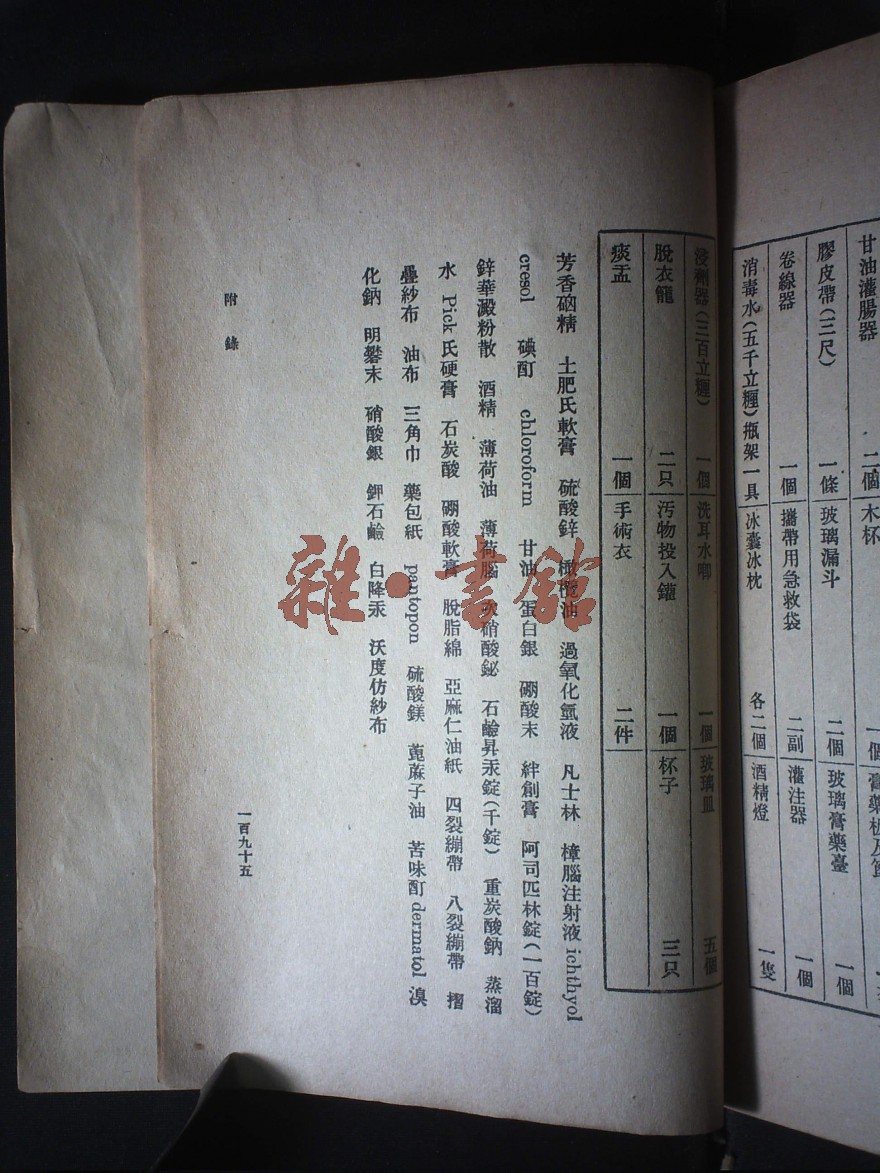 甘油灌腸器 二個 木杯 一個
膠皮帶(三尺) 一條 玻璃漏斗 二個 玻璃膏藥臺 一個
卷線器 一個 攜帶用急救袋 二副 灌注器 一個
消毒水(五千立糎)瓶架一具 冰囊冰枕 各二個 酒精燈 一隻
浸劑器(三百立糎) 一個 洗耳水唧 一個 玻璃皿 五個
脫衣籠 二只 汚物投入鑵 一個 杯子 三只
痰盂 一個 手術衣 二件
芳香𥑮精 土肥氏軟膏 硫酸鋅 橄欖油 過氧化氫液 凡士林 樟腦注射液 ichthyol
cresol 碘酊 chloroform 甘油 蛋白銀 硼酸末 絆創膏 阿司匹林錠(一百錠)
鋅華澱粉散 酒精 薄荷油 薄荷腦 次硝酸鉍 石鹼昇汞錠(千錠) 重炭酸鈉 蒸溜
水 Pick氏硬膏 石炭酸 硼酸軟膏 脫脂綿 亞麻仁油紙 四裂繃帶 八裂繃帶 摺
疊紗布 油布 三角巾 藥包紙 pantopon 硫酸鎂 蓖蔴子油 苦味酊 dermatol 溴
化鈉 明礬末 硝酸銀 鉀石鹼 白降汞 沃度仿紗布
附錄
一百九十五
雜·書館